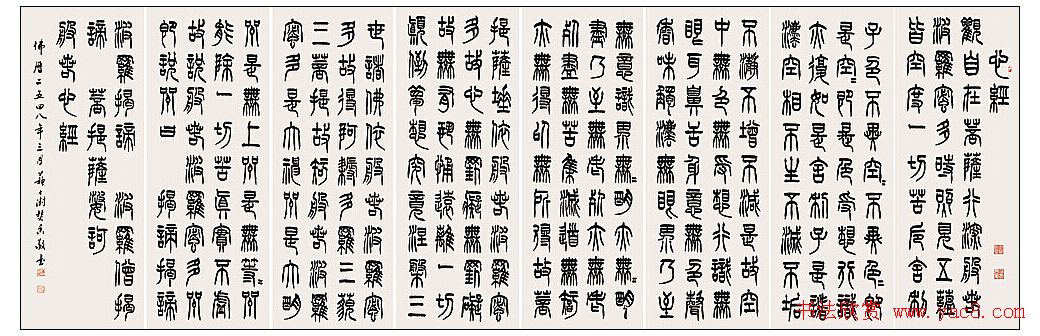 心經
觀自在菩薩行深般若
波羅蜜多時照見五蘊
皆空度一切苦厄舍利
子色不異空=不異色=即
是空=即是色受想行識
亦復如是舍利子是諸
法空相不生不滅不垢
不淨不增不減是故空
中無色無受想行識無
眼耳鼻舌身意無色聲
香味觸法無眼界乃至
無意識界無=明亦無=明
盡乃至無老死亦無老
死盡無苦集滅道無智
亦無得以無所得故菩
提薩埵依般若波羅蜜
多故心無罣礙無罣礙
故無有恐怖遠離一切
顛倒夢想究竟涅槃三
世諸佛依般若波羅蜜
多故得阿耨多羅三藐
三菩提故知般若波羅
蜜多是大神咒是大明
咒是無上咒是無等=咒
能除一切苦真實不虛
故說般若波羅蜜多咒
即說咒曰 揭諦揭諦
波羅揭諦 波羅僧揭
諦 菩提薩婆訶
般若心經
佛曆二五四八年三月 敬書
书法欣赏 www.yac8.com